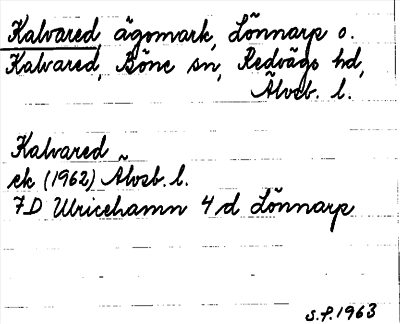 Kalvared, ägomark, Lönnarp o.
Kalvared, Böne sn, Redvägs hd,
Älvsb. l.
Kalvared
ek (1962) Älvsb. l.
7D Ulricehamn 4 d Lönnarp
S.F. 1963